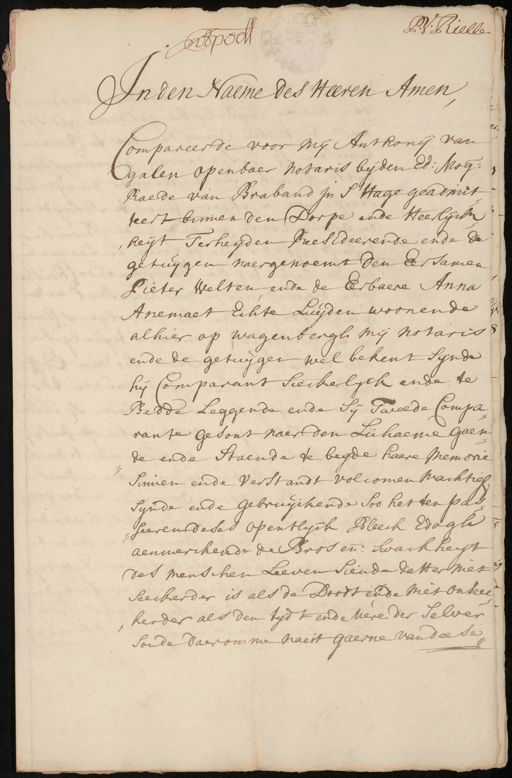 P.V: Rielle
In den Naeme des Heeren Amen,
Compareerde voor mij Anthonij van
galen openbaer notaris bij den Ed: Mog:
Raede van Braband in S'Hage geadmit
teert binnen den Dorpe ende Heerlijck,
,heijt Terheijden Resideerende ende de
getuijgen naergenoemt Den Ersamen
Pieter Velten ende de Eerbaere Anna
Anemaet Echte Luijden woonende
alhier op wagenbergh mij notaris
ende de getuijgen wel bekent Synde
hij Comparant Sieckelijck ende te
Bedde Leggende ende Sij Tweede Compa,
rante gesont naer den Lichaeme Gaen,
de ende Staende te beijde haere Memorie
Sinnen ende verstandt volcomen Machtich
Synde ende gebruijckende Soo het ten pas,
,seerende deses opentlijck Bleeck Edogh
aenmerckende de Broos en: Swackheijt
des menschen Leeven Siende datter niet
Seeckerder is als de Doodt ende niet onsee,
,kerder als den tijdt ende uere der Selver
Soude daeromme noeit gaerne van dese